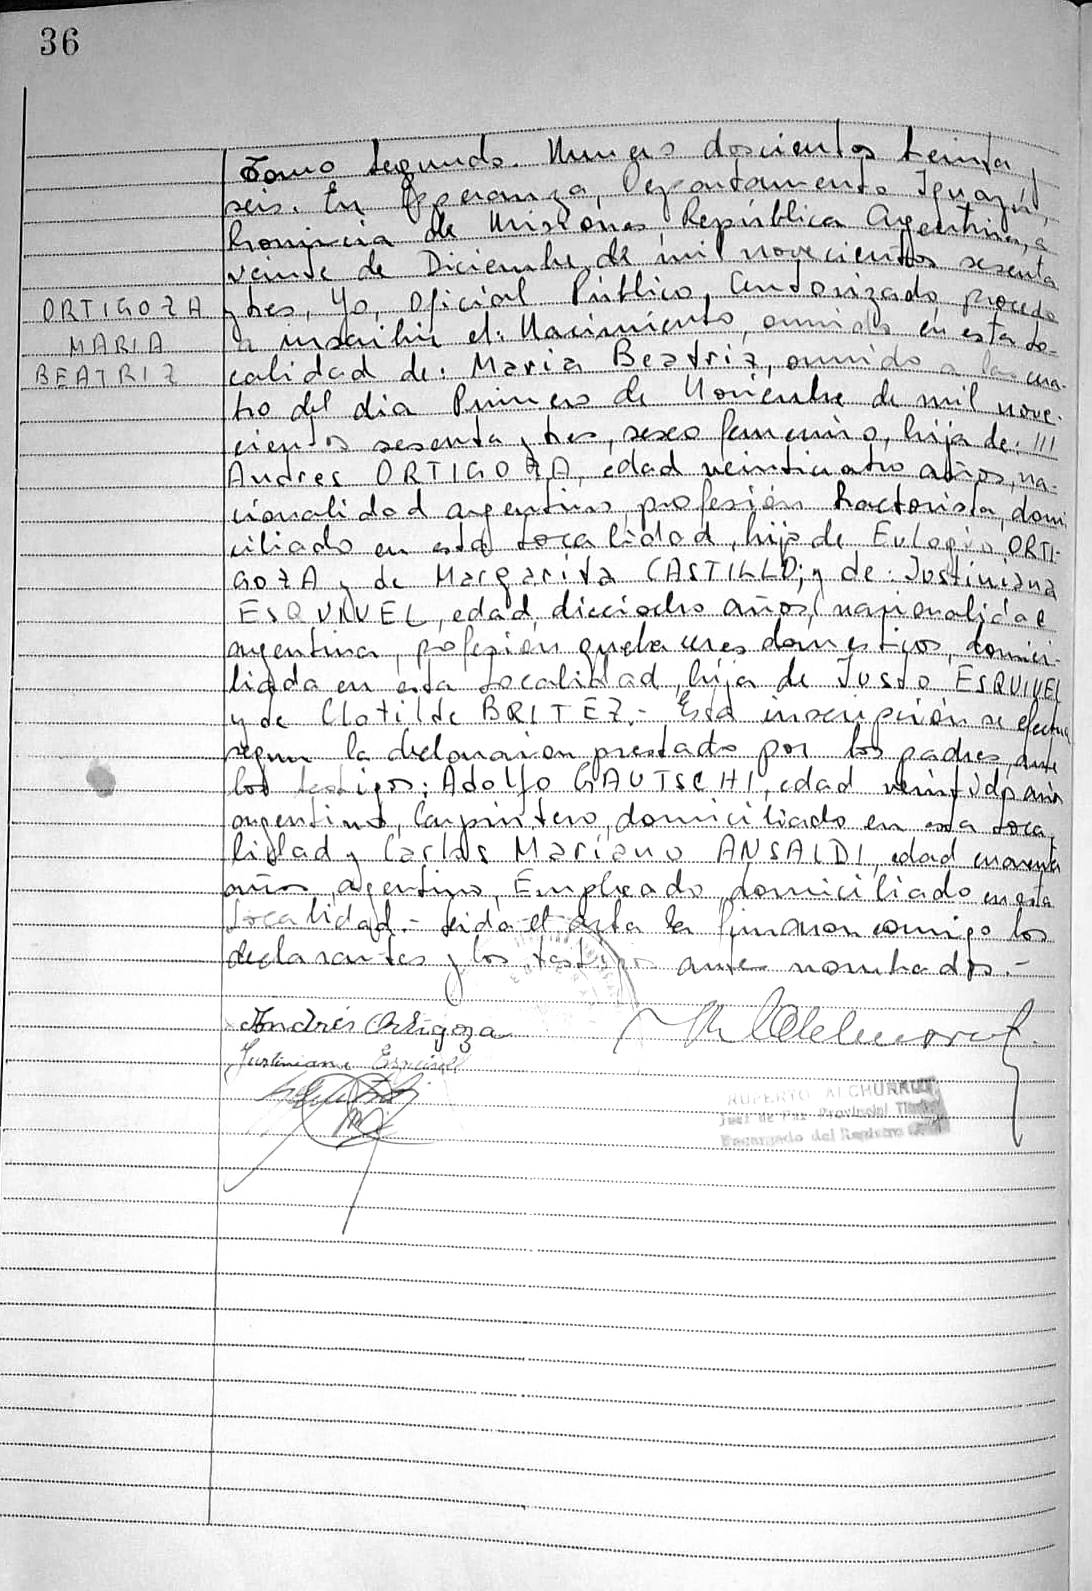 36
Tomo Segundo. Numero doscientos treinta
seis. En Esperanza, Departamento Iguazú,
Provincia de Misiones República Argentina, a
veinte de Diciembre de mil novecientos sesenta
y tres, Yo, Oficial Público, Autorizado procedo
a inscribir el: Nacimiento, ocurrido en esta lo-
calidad de: Maria Beatriz, ocurrido a las cua-
tro del dia Primero de Noviembre de mil nove-
cientos sesenta y tres, sexo femenino, hija de: ///
Andres ORTIGOZA, edad veinticuatro años, na-
cionalidad argentina profesión tractorista, domi
ciliado en esta localidad, hijo de Eulogio ORTI-
GOZA y de Margarita CASTILLO; y de: Justiniana
ESQUIVEL, edad dieciocho años, nacionalidad
argentina, profesión quehaceres domesticos, domici-
liada en esta localidad, hija de Justo ESQUIVEL
y de Clotilde BRITEZ.- Esta inscripción se efectua
segun la declaracion prestada por los padres, ante
los testigos: Adolfo GAUTSCHI, edad veintidos años
argentino, Carpintero, domiciliado en esta loca
lidad y Carlos Mariano ANSALDI, edad cuarenta
años, argentino, Empleado, domiciliado en esta
localidad.- Leida el acta la firmaron conmigo los
declarantes y los testigos antes nombrados.-
ORTIGOZA
MARIA
BEATRIZ
Andrés Ortigoza
Justiniana Esquivel
RUPERTO
Juez de Paz Provincial
Encargado del Registro